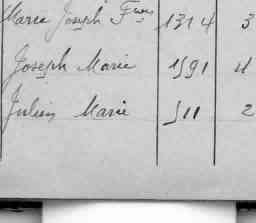 Marie Joseph Fçois 1314 3
Joseph Marie 1591 4
Julien Marie 511 2